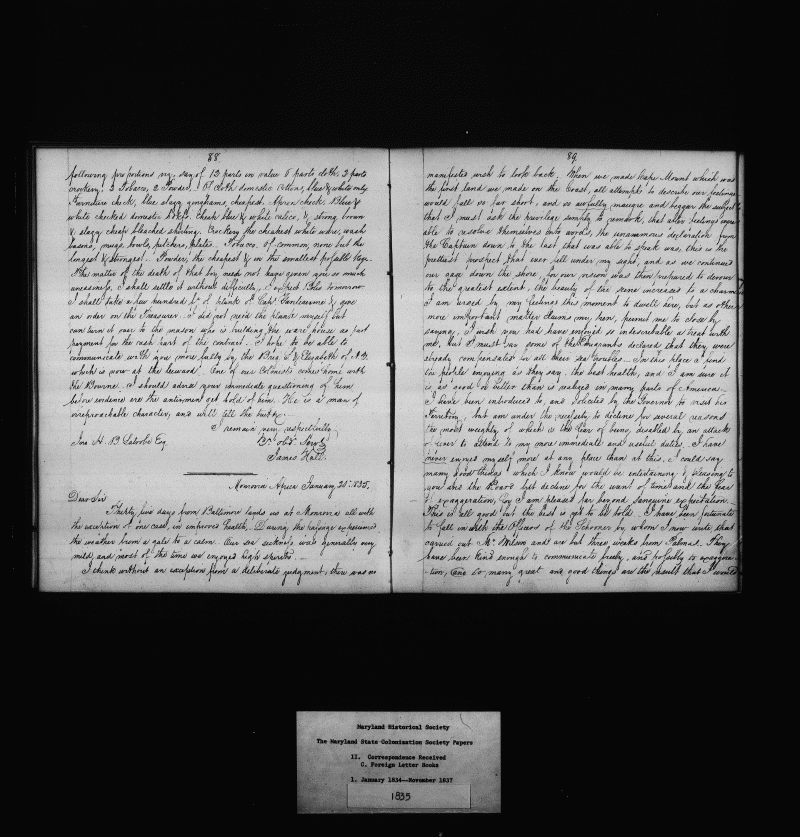 88
following proportions viz, say of 13 parts in value 6 parts cloth, 3 parts
crockery, 2 Tobaco, 2 Powder. Of Cloth domestic cotton, blue & white only
Furniture check, blue slazy ginghams, cheapest, Apron check, Blue &
white checked domestic Hdkfs. Check blue & white calico, & strong brown
& slazy cheap bleached shirting. Crockery the cheapest white ware, wash
basons, mugs, bowls, pitchers, plates. Tobaco, of common, none but the
longest & strongest. Powder, the cheapest & in the smallest possible kegs.
The matter of the death of that boy, need not have given you so much
uneasiness, I shall settle it without difficulty, I expect tomorrow
I shall take a few hundred ft of plank of Capt. & give
an order on the Treasurer. I did not need the plank myself but
can turn it over to the mason who is building the ware house as part
payment for the cash part of the contract. I hope to be able to
communicate with you more fully in the Brig Elizabeth of N.Y.
which is now at the leeward. One of our Colonists comes home with
the Bourne. I should advise your immediate questioning of him
before evidence ere the enlargement get hold of him. He is a man of
irreproachable character, and will tell the truth.
I remain very respectfully
Yr. obt. Servt
Jno. H. B Latrobe Esq
James Hall
Monrovia Africa January 21st 1835.
Dear Sir
Thirty five days from Baltimore lands us at Monrovia all with
the exception of one case, in improved health. During the passage experienced
the weather from a gale to a calm. Our sea sickness was generally very
mild, and most of the time we enjoyed high spirits.
I think without an exception from a deliberate judgment, there was no
89
manifested wish to look back. When we made Cape Mount which was
the first land we made on the Coast, all attempts to describe our feelings
would fall so far short, and so awfully meagre and beggar the subject
that I must ask the privilege simply to remark, that after feelings were
able to resolve themselves into words, the unanimous declaration from
the Captain down to the last that was able to speak was, this is the
prettiest prospect that ever fell under my sight, and as we continued
our gaze down the shore, for our vision was then prepared to devour
to the greatest extent, the beauty of the scene increased to a charm
I am urged by my feelings this moment to dwell here, but as other
more important matter claims my pen, permit me to close by
saying, I wish you had have enjoyed so indescribable a treat with
me, but I must say some of the Emigrants declared that they were
already compensated for all their sea troubles. In this place I find
the people enjoying as they say, the best health, and I am sure it
is as good or better than is realized in many parts of America.
I have been introduced to, and solicited by the Governor to visit his
Territory, but am under the necessity to decline for several reasons
the most weighty of which is the fear of being disabled by an attack
of fever to attend to my more immediate and useful duties. I have
never enjoyed myself more at any place than at this, I could say
many good things which I know would be entertaining & pleasing to
you and the Board but decline for the want of time and the fear
of exageration, for I am pleased far beyond sanguine expectation.
This is all good but the best is yet to be told. I have been fortunate
to fall in with the Officers of the Schooner by whom I now write, that
carried out Mr Wilson and are but three weeks from Palmas. They
have been kind enough to communicate freely, and possibly to exaggera
-tion, and so many great and good things are the result that I would
Maryland Historical Society
The Maryland State Colonization Society Papers
II. Correspondence Received
C. Foreign Letter Books
1. January 1834--November 1837
1835